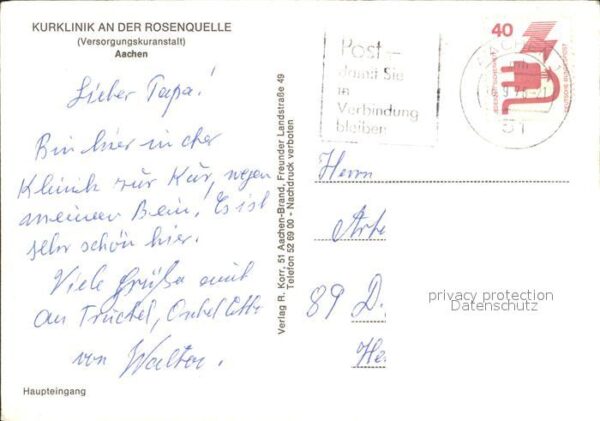 KURKLINIK AN DER ROSENQUELLE
(Versorgungskuranstalt)
Aachen
Lieber Papa!
Bin hier in der
Klinik zur Kur, wegen
meinem Bein! Es ist
sehr schön hier.
Viele Grüße auch
an Trüchel, Onkel Otto
von Walter.
Haupteingang
Verlag R. Korr, 51 Aachen-Brand, Freunder Landstraße 49
Telefon 52 69 00 - Nachdruck verboten
Post –
damit Sie
in
Verbindung
bleiben
40
DEUTSCHE BUNDESPOST
AACHEN
51
Herrn
89 D.
privacy protection
Datenschutz